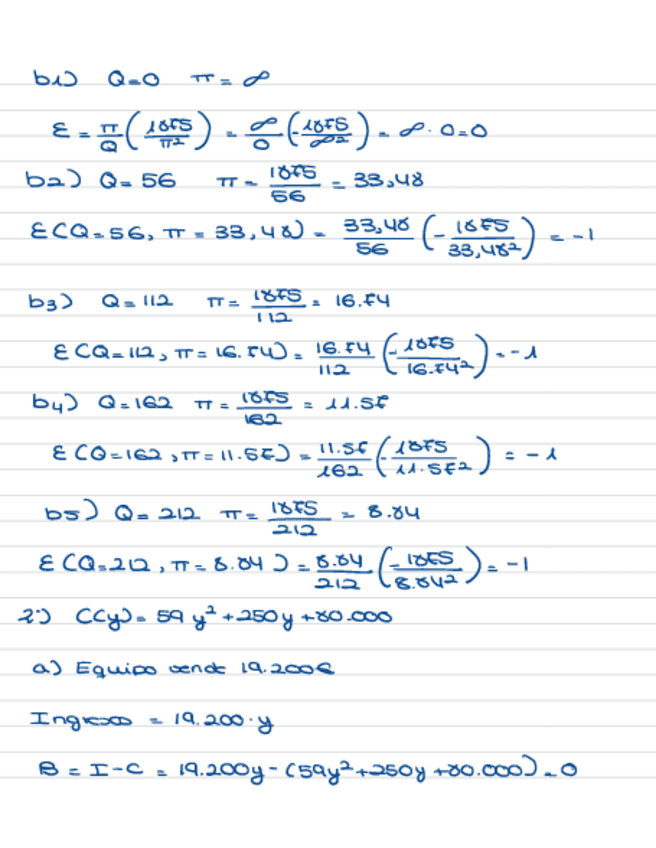 b1) Q=0 π = ∞
ε = π/Q (1875/π²) = ∞/0 (-1875/∞²) = ∞ · 0=0
b2) Q= 56 π = 1875/56 = 33,48
ε(Q=56, π = 33,48) = 33,48/56 (- 1875/33,48²) = -1
b3) Q= 112 π= 1875/112 = 16.74
ε(Q=112, π= 16.74)= 16.74/112 (-1875/16.74²) = -1
b4) Q=162 π= 1875/162 = 11.57
ε(Q=162, π=11.57) = 11.57/162 (1875/11.57²) = -1
b5) Q= 212 π= 1875/212 = 8.84
ε(Q=212, π=8.84) = 8.84/212 (-1875/8.84²) = -1
2:) C(y)= 59 y²+250y+80.000
a) Equipo vende 19.200€
Ingresos = 19.200·y
B = I-C = 19.200y-(59y²+250y+80.000)=0